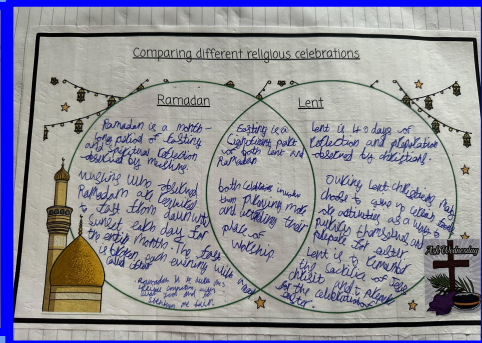 Comparing different religious celebrations
Ramadan
Ramadan is a month-
long period of fasting
and spiritual reflection
observed by muslims.
muslims who observe
Ramadan are required
to fast from dawn until
sunset each day for
the entire month. The fast
is broken each evening with a meal
called iftar
Ramadan is to help
Fasting is a
significant part
of both Lent and
Ramadan
both celebrations involve
them praying more
and attending their
place of
worship.
Lent
Lent is 40 days of
reflection and preparation
observed by christians.
During Lent christians may
choose to give up certain foods
or activities as a way to
purify themselves and
prepare for easter
Lent is to remember
the sacrifice of Jesus
christ and prepare
for the celebration of
easter.
Ash Wednesday